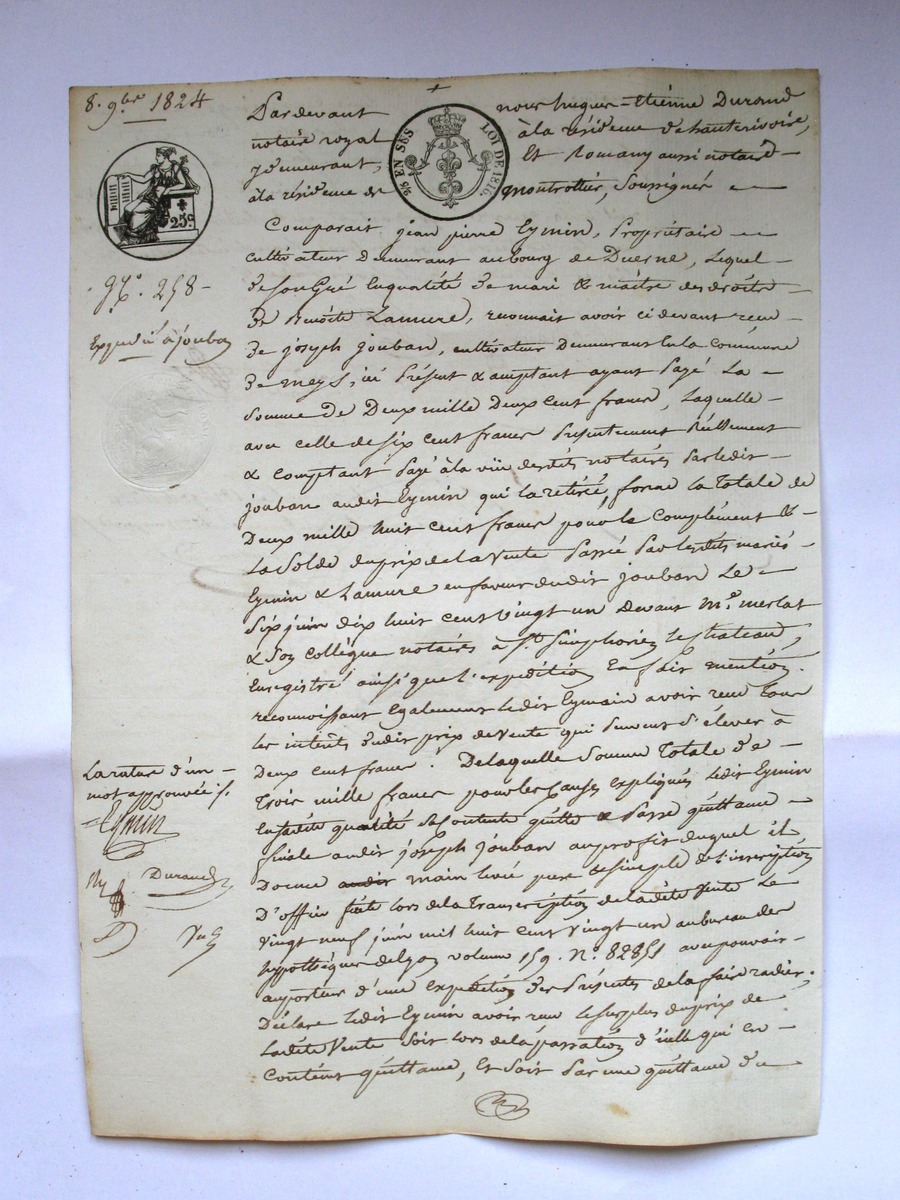 8. 9bre 1824
Pardevant nous hugues=Etiènne Durand
notaire royal à la résidence de hauterivoire,
y demeurant, Et Romany aussi notaire
à la résidence de montrottier, Soussignés
2/5 EN SUS LOI DE 1816
25c.
Comparait jean pierre Eymin, Propriétaire
cultivateur demeurant au bourg de Duerne, Lequel
de son Gré En qualité de mari & maitre des droits
De Benoite Lamure, reconnait avoir ci devant recu
De joseph jouban, cultivateur Demeurant En la commune
de meys, ici Présent & acceptant ayant Payé La
Somme de Deux mille Deux cent francs, Laquelle
avec celle de six cent francs Présentement Réellement
& comptant Payé à la vüe desdits notaires Par ledit
jouban audit Eymin qui la retiré, forme la Totale de
Deux mille huit cent francs pour le Complément &
La Solde du prix de la Vente Passée Par lesdits mariés
Eymin & Lamure en faveur dudit jouban Le
Six juin dix huit cent Vingt un devant me. merlat
& Son Collègue notaires à st. Simphorien le chateau,
Enregistré ainsi que l'expedition En fait mention.
reconnoissant Egalement ledit Eymain avoir recu Tous
les intérets dudit prix de Vente qui Peuvent S'élever à
Deux cent francs. De laquelle Somme Totale de
Trois mille francs pour les Causes expliquées ledit Eymin
En sadite qualité Se contente quitte & Passe quittance
finale audit joseph jouban au profit duquel il
Donne audit main levée pure & simple de l'inscription
D'office faite lors de la Transcription de ladite Vente Le
Vingt neuf juin mil huit cent vingt un au bureau des
hypothèques de Lyon volume 159. No. 82851 avec pouvoir
au porteur d'une expedition des Présentes de la faire radier;
Déclare ledit Eymin avoir recu le surplus du prix de
Ladite Vente Soit lors de la passation d'icelle qui en
Contient quittance, Et Soit Par une quittance du
No. 258
Expedié à jouban
La rature d'un
mot approuvée ./.
Eymin
Durand